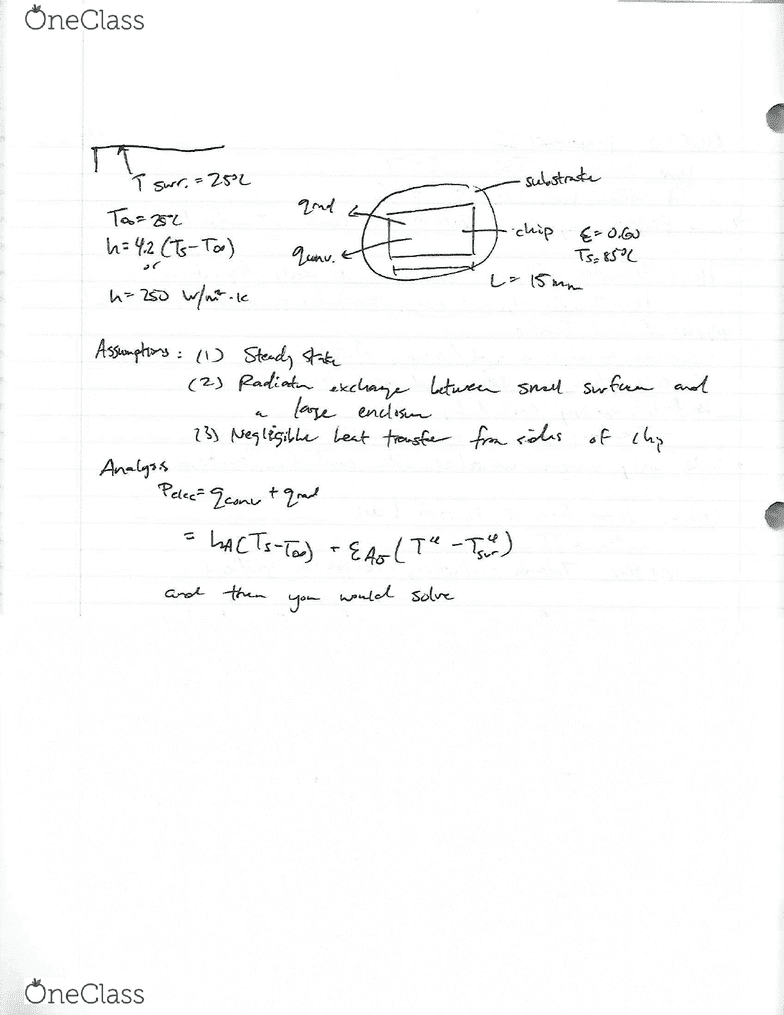 OneClass
T surr. = 25°C
T∞ = 25°C
h = 4.2 (Ts - T∞)
or
h = 250 W/m²·K
qrad
qconv.
substrate
chip
ε = 0.60
Ts = 85°C
L = 15 mm
Assumptions : (1) Steady state
(2) Radiation exchange between small surface and
a large enclosure
(3) Negligible heat transfer from sides of chip
Analysis
Pelec = qconv + qrad
= hA(Ts - T∞) + εAσ(T⁴ - Tsur⁴)
and then you would solve
OneClass